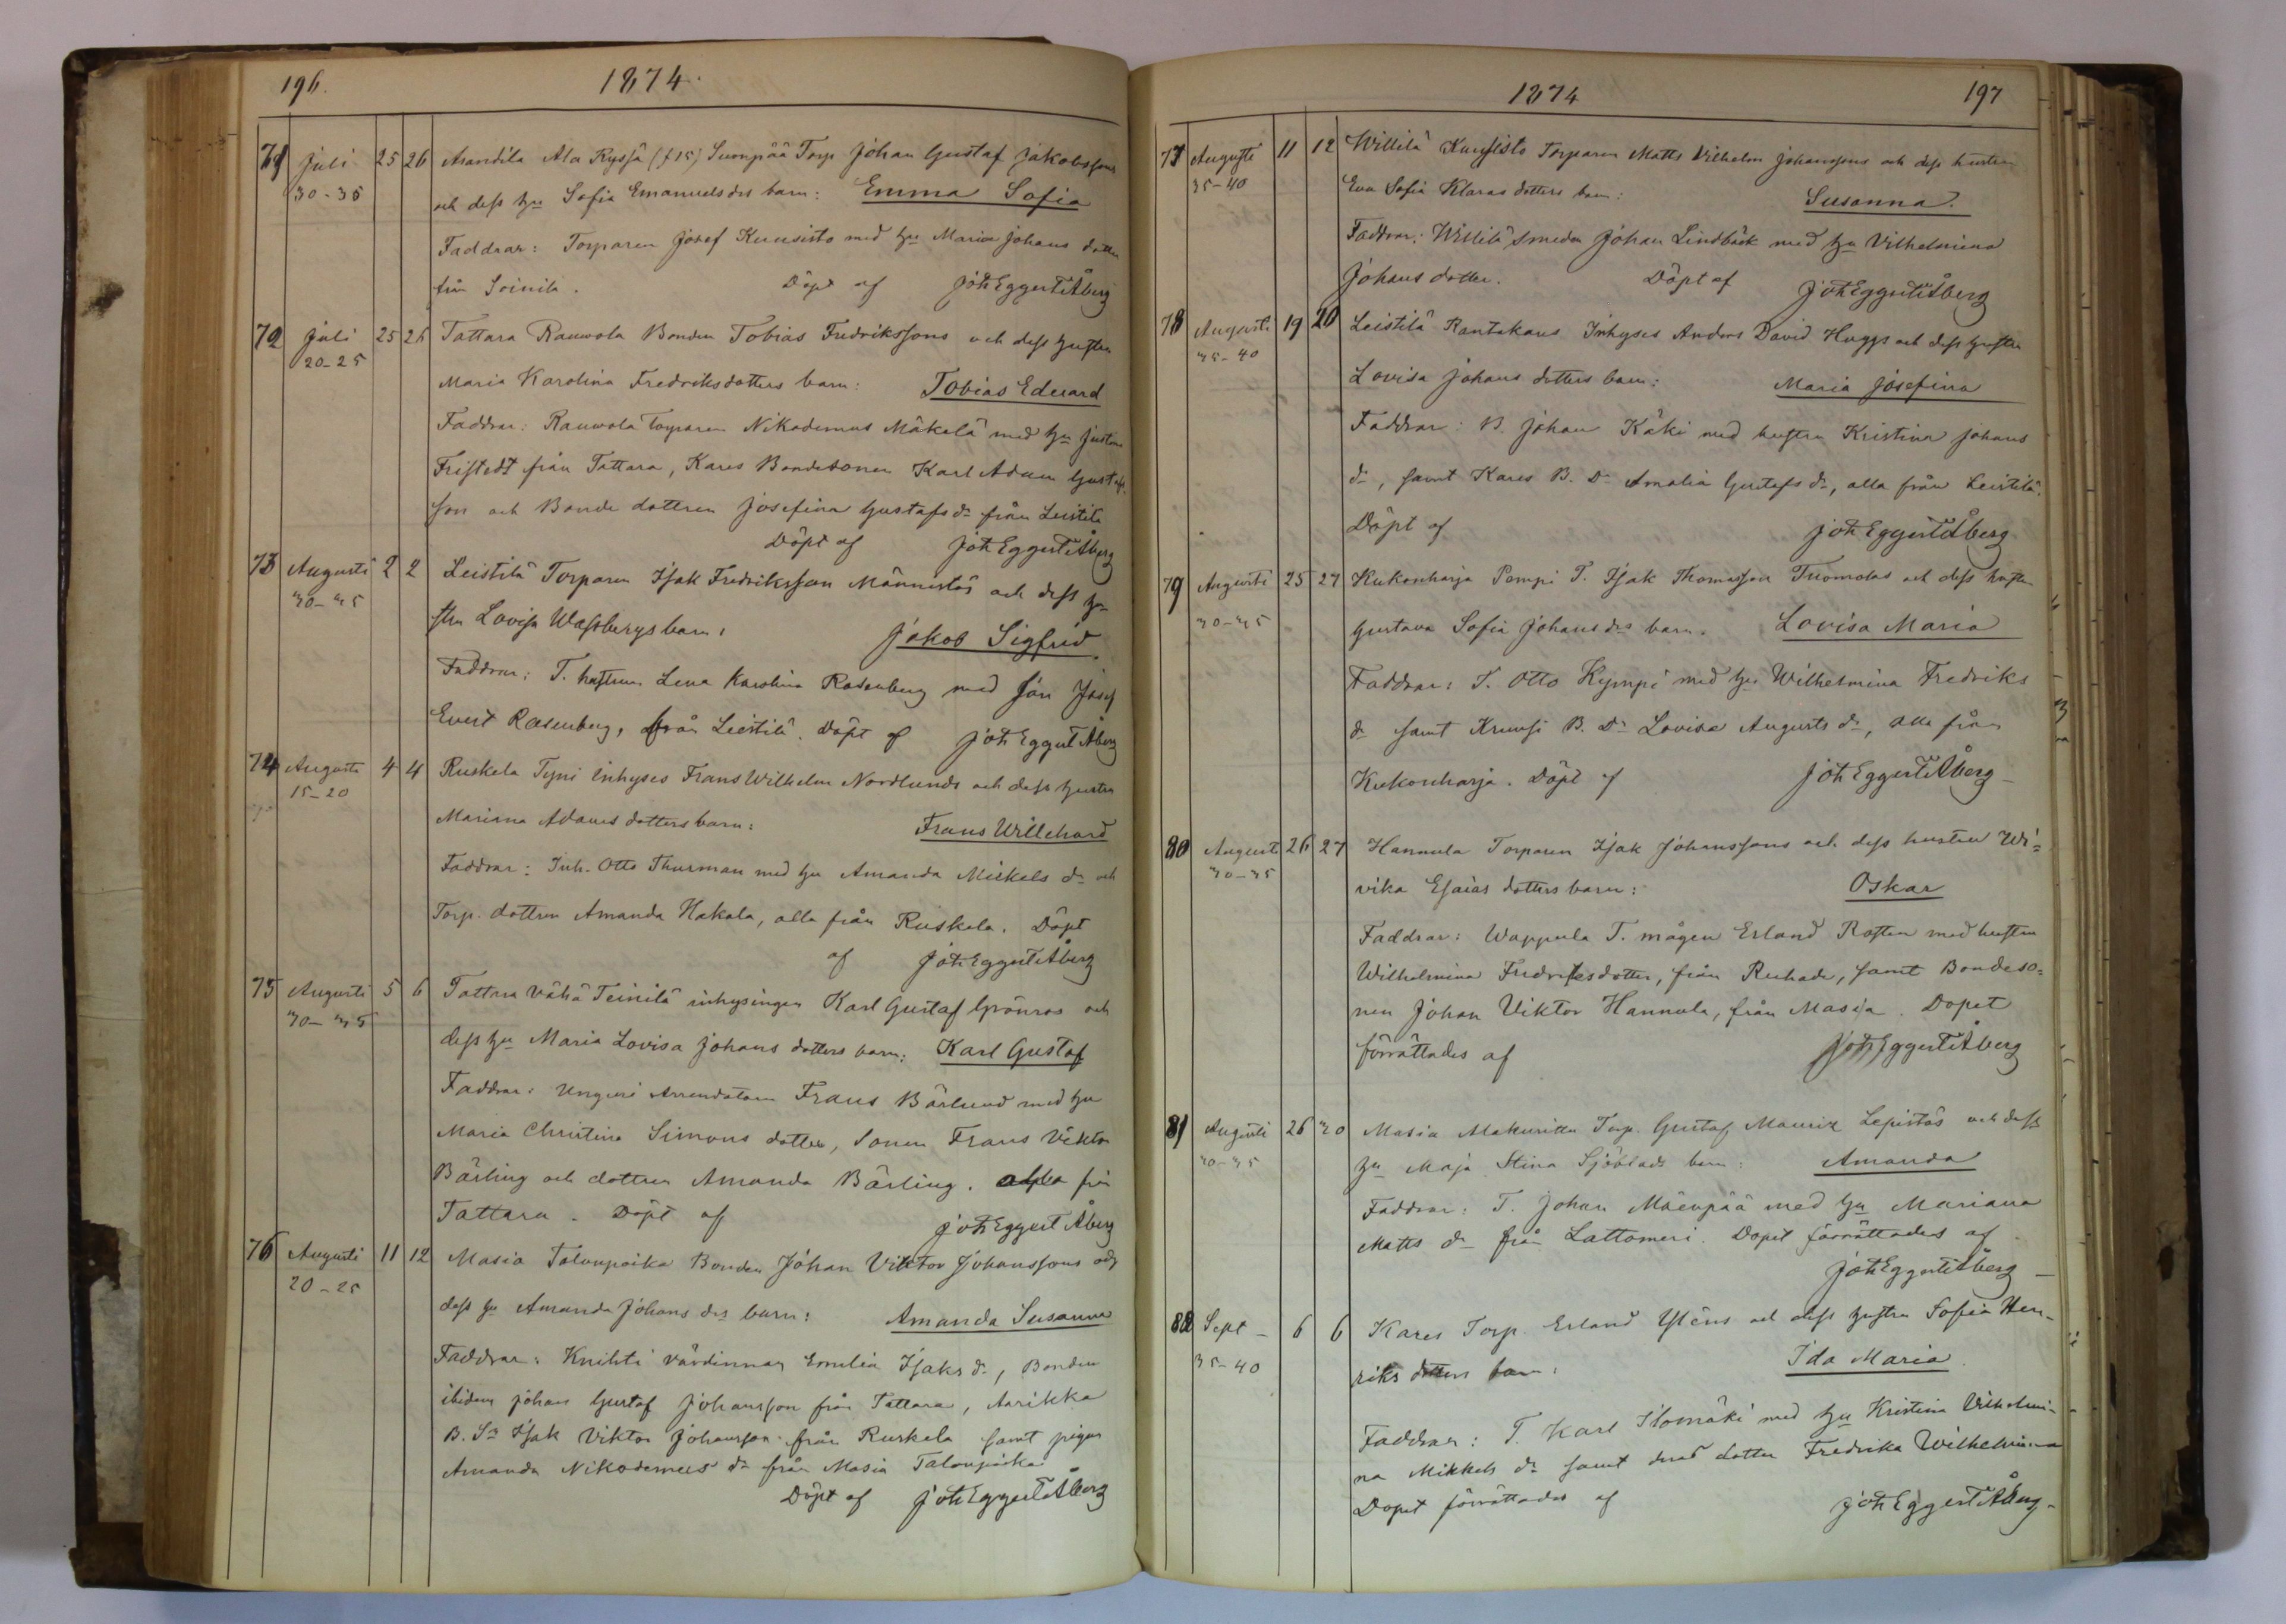 196.
1874.
71 Juli 25 26 Anandila Ala Ryssä (f 15) Suonpää Torp Johan Gustaf Jakobssons
30-35 och dess hu Sofia Emanuelsdrs barn: Emma Sofia
Faddrar: Torparen Josef Kuusisto med hu Maria Johans dotter
från Soinila. Döpt af Joh Eggert Åberg
72 Juli 25 26 Tattara Rauwola Bonden Tobias Fredrikssons och dess hustru
20-25 Maria Karolina Fredriksdotters barn: Tobias Edvard
Faddrar: Rauwola Torparen Nikodemus Mäkelä med hu Justina
Fristedt från Tattara, Kares Bondesonen Karl Adam Gustafs
son och Bonde dottren Josefina Gustafs dr från Leistilä
Döpt af Joh Eggert Åberg
73 Augusti 2 2 Leistilä Torparen Isak Fredriksson Männistös och dess hu-
30-35 stru Lovisa Wassbergs barn: Jakob Sigfrid
Faddrar: T. hustrun Lena Karolina Rosenberg med son Josef
Evert Rosenberg, från Leistilä. Döpt af Joh Eggert Åberg
74 Augusti 4 4 Ruskela Tyni Inhyses Frans Wilhelm Nordlunds och dess hustru
15-20
Mariana Adams dotters barn: Frans Willehard
Faddrar: Inh. Otto Thurman med hu Amanda Mickels dr och
Torp. dottren Amanda Hakala, alla från Ruskela. Döpt
af Joh Eggert Åberg
75 Augusti 5 6 Tattara Vähä Teinilä inhysingen Karl Gustaf Grönros och
30-35
dess hu Maria Lovisa Johans dotters barn: Karl Gustaf
Faddrar: Arrendatorn Frans Bärlund med hu
Maria Christina Simons dotter, Sonen Frans Viktor
Bärling och dottren Amanda Bärling. alla från
Tattara. Döpt af Joh Eggert Åberg
76 Augusti 11 12 Masia Talonpoika Bonden Johan Viktor Johanssons och
20-25
dess hu Amanda Johans drs barn: Amanda Susanna
Faddrar: Knihti värdinnan Emilia Isaks dr, Bonden
ibidem Johan Gustaf Johansson från Tattara, Aarikka
B. Sn Isak Viktor Johansson från Ruskela samt pigan
Amanda Nikodemus dr från Masia Talonpoika
Döpt af Joh Eggert Åberg
1874
197
77 Augusti 11 12 Willilä Kuusisto Torparen Matts Vilhelm Johanssons och dess hustru
35-40 Eva Sofia Klaras dotters barn: Susanna.
Faddrar: Willilä smeden Johan Lindbäck med hu Vilhelmina
Johans dotter. Döpt af Joh Eggert Åberg
78 Augusti 19 20 Leistilä Rantakans Inhyses Anders David Huggs och dess hustru
35-40
Lovisa Johans dotters barn: Maria Josefina
Faddrar: B. Johan Käki med hustru Kristina Johans
dr, samt Kares B. Dr Amalia Gustafs dr, alla från Leistilä.
Döpt af Joh Eggert Åberg
79 Augusti 25 27 Kukonharja Pempi T. Isak Thomasson Tuomolas och dess hustru
30-35
Gustava Sofia Johans drs barn. Lovisa Maria
Faddrar: T. Otto Kympi med hu Wilhelmina Fredriks
dr samt Kruusi B. Dr Lovisa Augusts dr, alla från
Kukonharja. Döpt af Joh Eggert Åberg
80 Augusti 26 27 Hannula Torparen Isak Johanssons och dess hustru Wi=
30-35
vika Esaias dotters barn: Oskar
Faddrar: Wappula T. mågen Erland Rosten med hustru
Wilhelmina Fredriksdotter, från Ruhade, samt Bondeso=
nen Johan Viktor Hannula, från Masia. Dopet
förrättades af Joh Eggert Åberg
81 Augusti 26 30 Masia Makuritta Torp. Gustaf Mauriz Lepistös och dess
30-35
hu Maja Stina Sjöblads barn: Amanda
Faddrar: T. Johan Mäenpää med hu Mariana
Matts dr från Lattomeri. Dopet förrättades af
Joh Eggert Åberg
82 Sept - 6 6 Kares Torp. Erland Yléns och dess hustru Sofia Hen-
35-40
riks dotters barn: Ida Maria
Faddrar: T. Karl Ilomäki med hu Kristina Vilhelmi-
na Mikkels dr samt deras dotter Fredrika Wilhelmina
Dopet förrättades af Joh Eggert Åberg